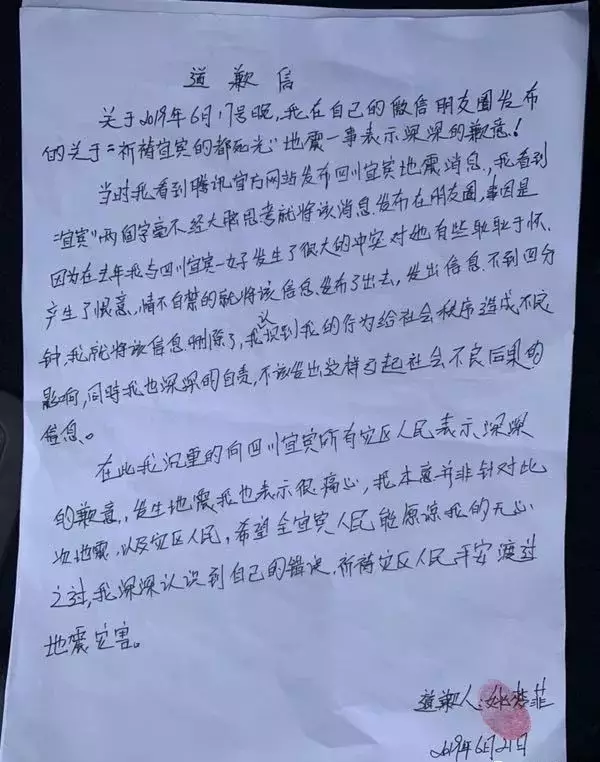 道歉信
关于2019年6月17号晚,我在自己的微信朋友圈发布
的关于"祈祷宜宾的都死光"地震一事表示深深的歉意!
当时我看到腾讯官方网站发布四川宜宾地震消息,我看到
"宜宾"两个字毫不经大脑思考就将该消息发布在朋友圈,事因是
因为在去年我与四川宜宾一女子发生了很大的冲突对她有些耿耿于怀,
产生了恨意,情不自禁的就将该信息发布了出去,发出信息不到四分
钟,我就将该信息删除了,我认识到我的行为给社会秩序造成不良
影响,同时我也深深的自责,不该发出这样引起社会不良后果的
信息。
在此我沉重的向四川宜宾所有灾区人民表示深深
的歉意,发生地震我也表示很痛心,我本意并非针对此
次地震,以及灾区人民,希望全宜宾人民能原谅我的无心
之过,我深深认识到自己的错误,祈祷灾区人民平安渡过
地震灾害。
道歉人:姚梦菲
2019年6月21日